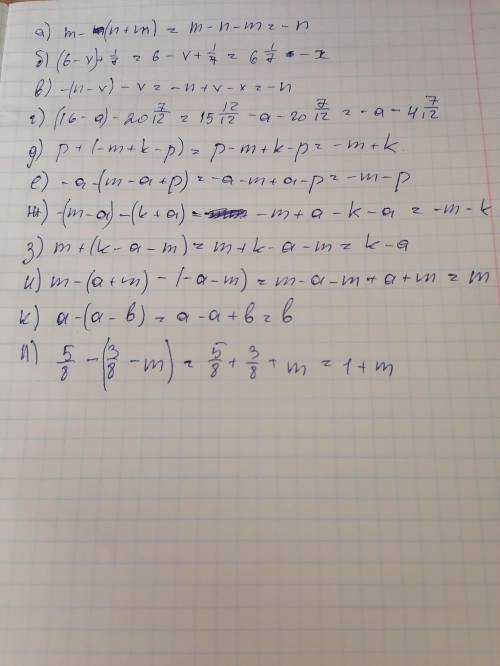 а) m - (n+m) = m - n - m = - n
б) (6 - v) + 1/7 = 6 - v + 1/7 = 6 1/7 - x
в) -(n - v) - v = - n + v - x = - n
г) (16 - a) - 20 7/12 = 15 12/12 - a - 20 7/12 = - a - 4 7/12
д) p + (-m + k - p) = p - m + k - p = - m + k
е) - a - (m - a + p) = - a - m + a - p = - m - p
ж) -(m - a) - (k + a) = - m + a - k - a = - m - k
з) m + (k - a - m) = m + k - a - m = k - a
и) m - (a + m) - (- a - m) = m - a - m + a + m = m
к) a - (a - b) = a - a + b = b
л) 5/8 - (3/8 - m) = 5/8 + 3/8 + m = 1 + m